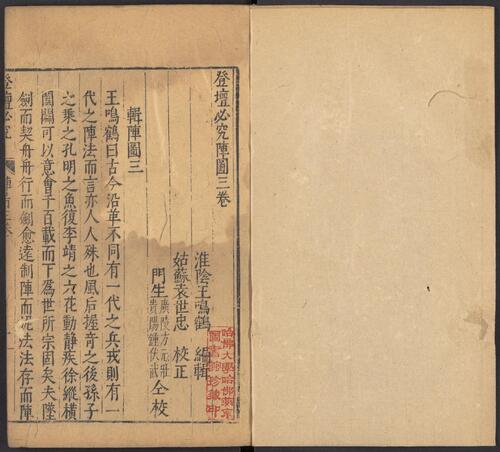 登壇必究陣圖三卷
淮陰王鳴鶴 編輯
姑蘇袁世忠 校正
門生廣陵方元壯 仝校
貴陽鍾伏武
輯陣圖三
王鳴鶴曰古今沿革不同有一代之兵戎則有一
代之陣法而言亦人人殊也風后握奇之後孫子
之乘之孔明之魚復李靖之六花動靜疾徐縱橫
闔闢可以意會千百載而下為世所宗固矣夫墜
劍而契舟舟行而劍愈遠制陣而泥法法存而陣
登壇必究
哈佛大學哈佛燕京
圖書館珍藏印